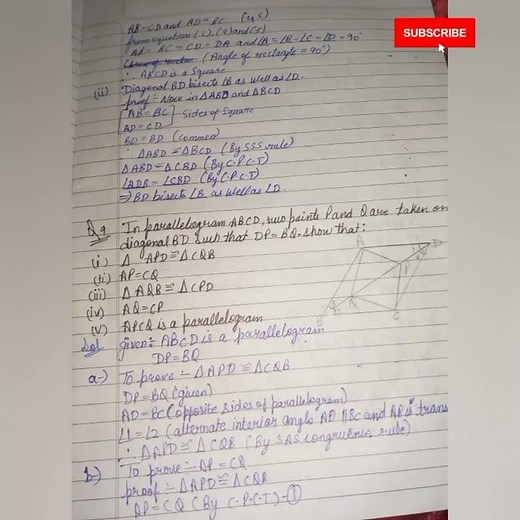 SUBSCRIBE
AB=CD and AD=BC
from equation
AB = BC = CD = DA and ∠A = ∠B = ∠C = ∠D = 90°
(Angle of rectangle = 90°)
∴ ABCD is a Square
(ii) Diagonal BD bisects ∠B as well as ∠D.
proof:- Now in ΔABD and ΔBCD
[AB=BC] Sides of Square
AD=CD
BD=BD (common)
∴ ΔABD ≅ ΔBCD (By SSS rule)
ΔABD = ΔCBD (By C.P.C.T)
= ∠CBD (By C.P.C.T)
⇒ BD bisects ∠B as well as ∠D.
Q9 In parallelogram ABCD, two points P and Q are taken on
diagonal BD such that DP=BQ. show that:
(i) Δ APD ≅ ΔCQB
(ii) AP=CQ
(iii) Δ AQB ≅ ΔCPD
(iv) AQ=CP
(v) APCQ is a parallelogram
Sol given:- ABCD is a parallelogram
DP=BQ
a-) To prove:- ΔAPD ≅ ΔCQB
DP=BQ (given)
AD=BC (opposite sides of parallelogram)
∠1=∠2 (alternate interior angle AD ∥BC and trans
∴ ΔAPD ≅ ΔCQB (By SAS congruency rule)
b-) To prove:- AP=CQ
proof:- ΔAPD ≅ ΔCQB
AP=CQ (By C.P.C.T)-①